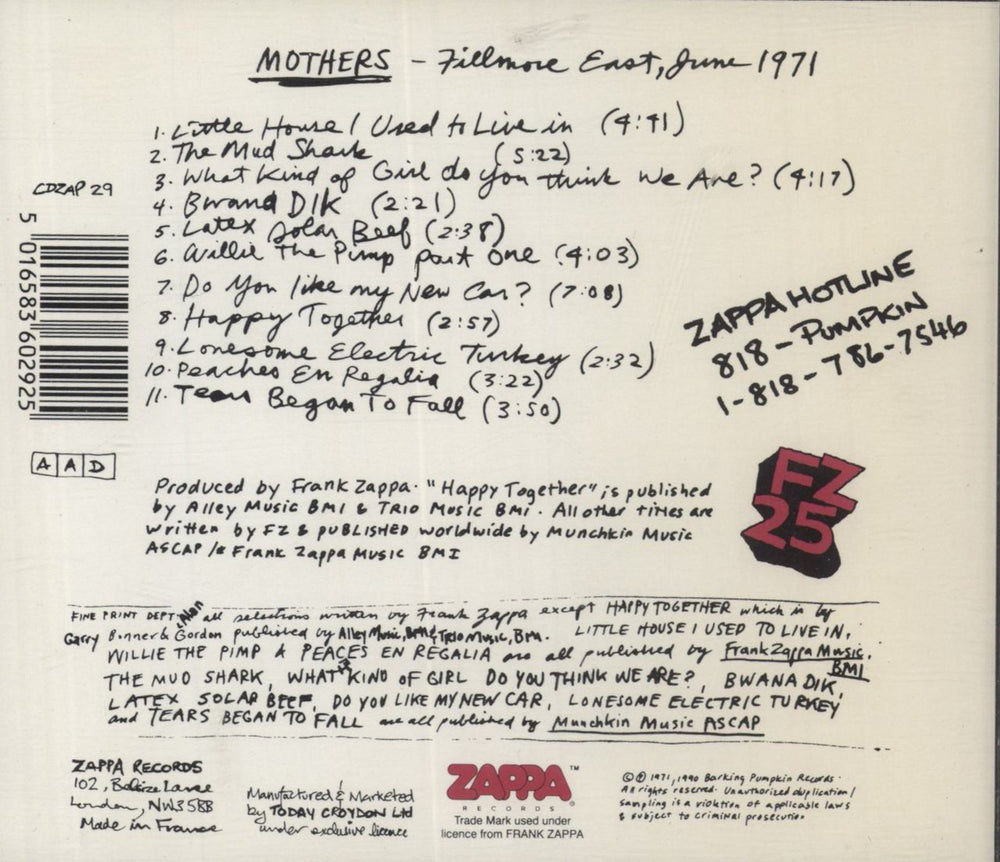 MOTHERS - Fillmore East, June 1971
1. Little House I Used to Live in (4:41)
2. The Mud Shark (5:22)
3. What Kind of Girl do you think We Are? (4:17)
4. Bwana DIK (2:21)
5. Latex Solar Beef (2:38)
6. Willie The Pump part One (4:03)
7. Do You like my New Car? (7:08)
8. Happy Together (2:57)
9. Lonesome Electric Turkey (2:32)
10. Peaches En Regalia (3:22)
11. Tears Began To Fall (3:50)
CDZAP 29
5 016583 602925
AAD
ZAPPA HOTLINE
818 - PUMPKIN
1-818-786-7546
FZ
25
Produced by Frank Zappa. "Happy Together" is published
by Alley Music BMI & TRIO Music BMI. All other titles are
written by FZ & PUBLISHED worldwide by Munchkin Music
ASCAP / Frank Zappa Music BMI
FINE PRINT DEPT all selections written by Frank Zappa except HAPPY TOGETHER which is by Alan
Garry Bonner & Gordon published by Alley Music, BMI & TRIO Music, BMI. LITTLE HOUSE I USED TO LIVE IN,
WILLIE THE PIMP & PEACES EN REGALIA are all published by Frank Zappa Music, BMI
THE MUD SHARK, WHAT KIND OF GIRL DO YOU THINK WE ARE?, BWANA DIK,
LATEX SOLAR BEEF, DO YOU LIKE MY NEW CAR, LONESOME ELECTRIC TURKEY
and TEARS BEGAN TO FALL are all published by Munchkin Music ASCAP
ZAPPA RECORDS
102, Belsize Lane
London, NW3 5BB
Made in France
Manufactured & Marketed
by TODAY CROYDON Ltd
under exclusive licence
ZAPPA™
RECORDS®
Trade Mark used under
licence from FRANK ZAPPA
© ℗ 1971, 1990 Barking Pumpkin Records.
All rights reserved. Unauthorized duplication/
sampling is a violation of applicable laws
& subject to criminal prosecution